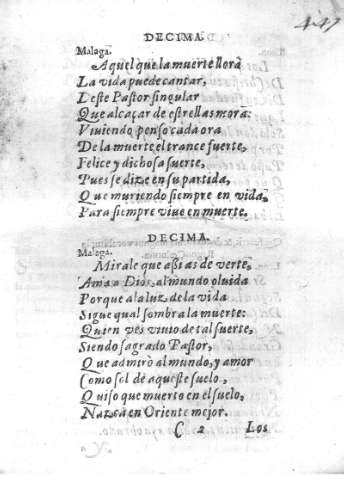 447
DECIMA.
Malaga.
Aquel que la muerte llora
La vida puede cantar,
I este Pastor singular
Que alcaçar de estrellas mora:
Viviendo pensò cada ora
De la muerte el trance fuerte,
Felice y dichosa suerte,
Pues se dize en su partida,
Que muriendo siempre en vida,
Para siempre vive en muerte.
DECIMA.
Malaga.
Mirale que assi as de verte,
Ama a Dios, al mundo oluida
Porque a la luz de la vida
Sigue qual sombra la muerte:
Quien ves vivio de tal suerte,
Siendo sagrado Pastor,
Que admirò al mundo, y amor
Como sol de aqueste suelo,
Quiso que muerto en el suelo,
Nazca en Oriente mejor.
C 2 Los